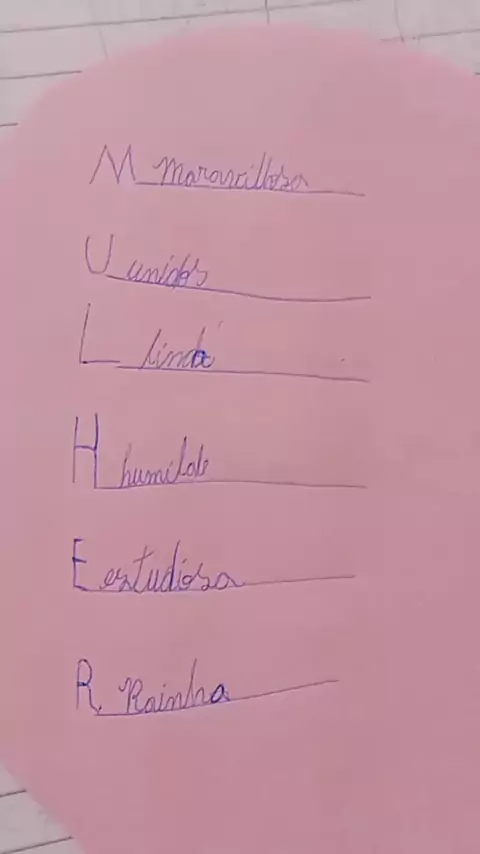 M maravillosa
U unidos
L linda
H humilde
E estudiosa
R Rainha